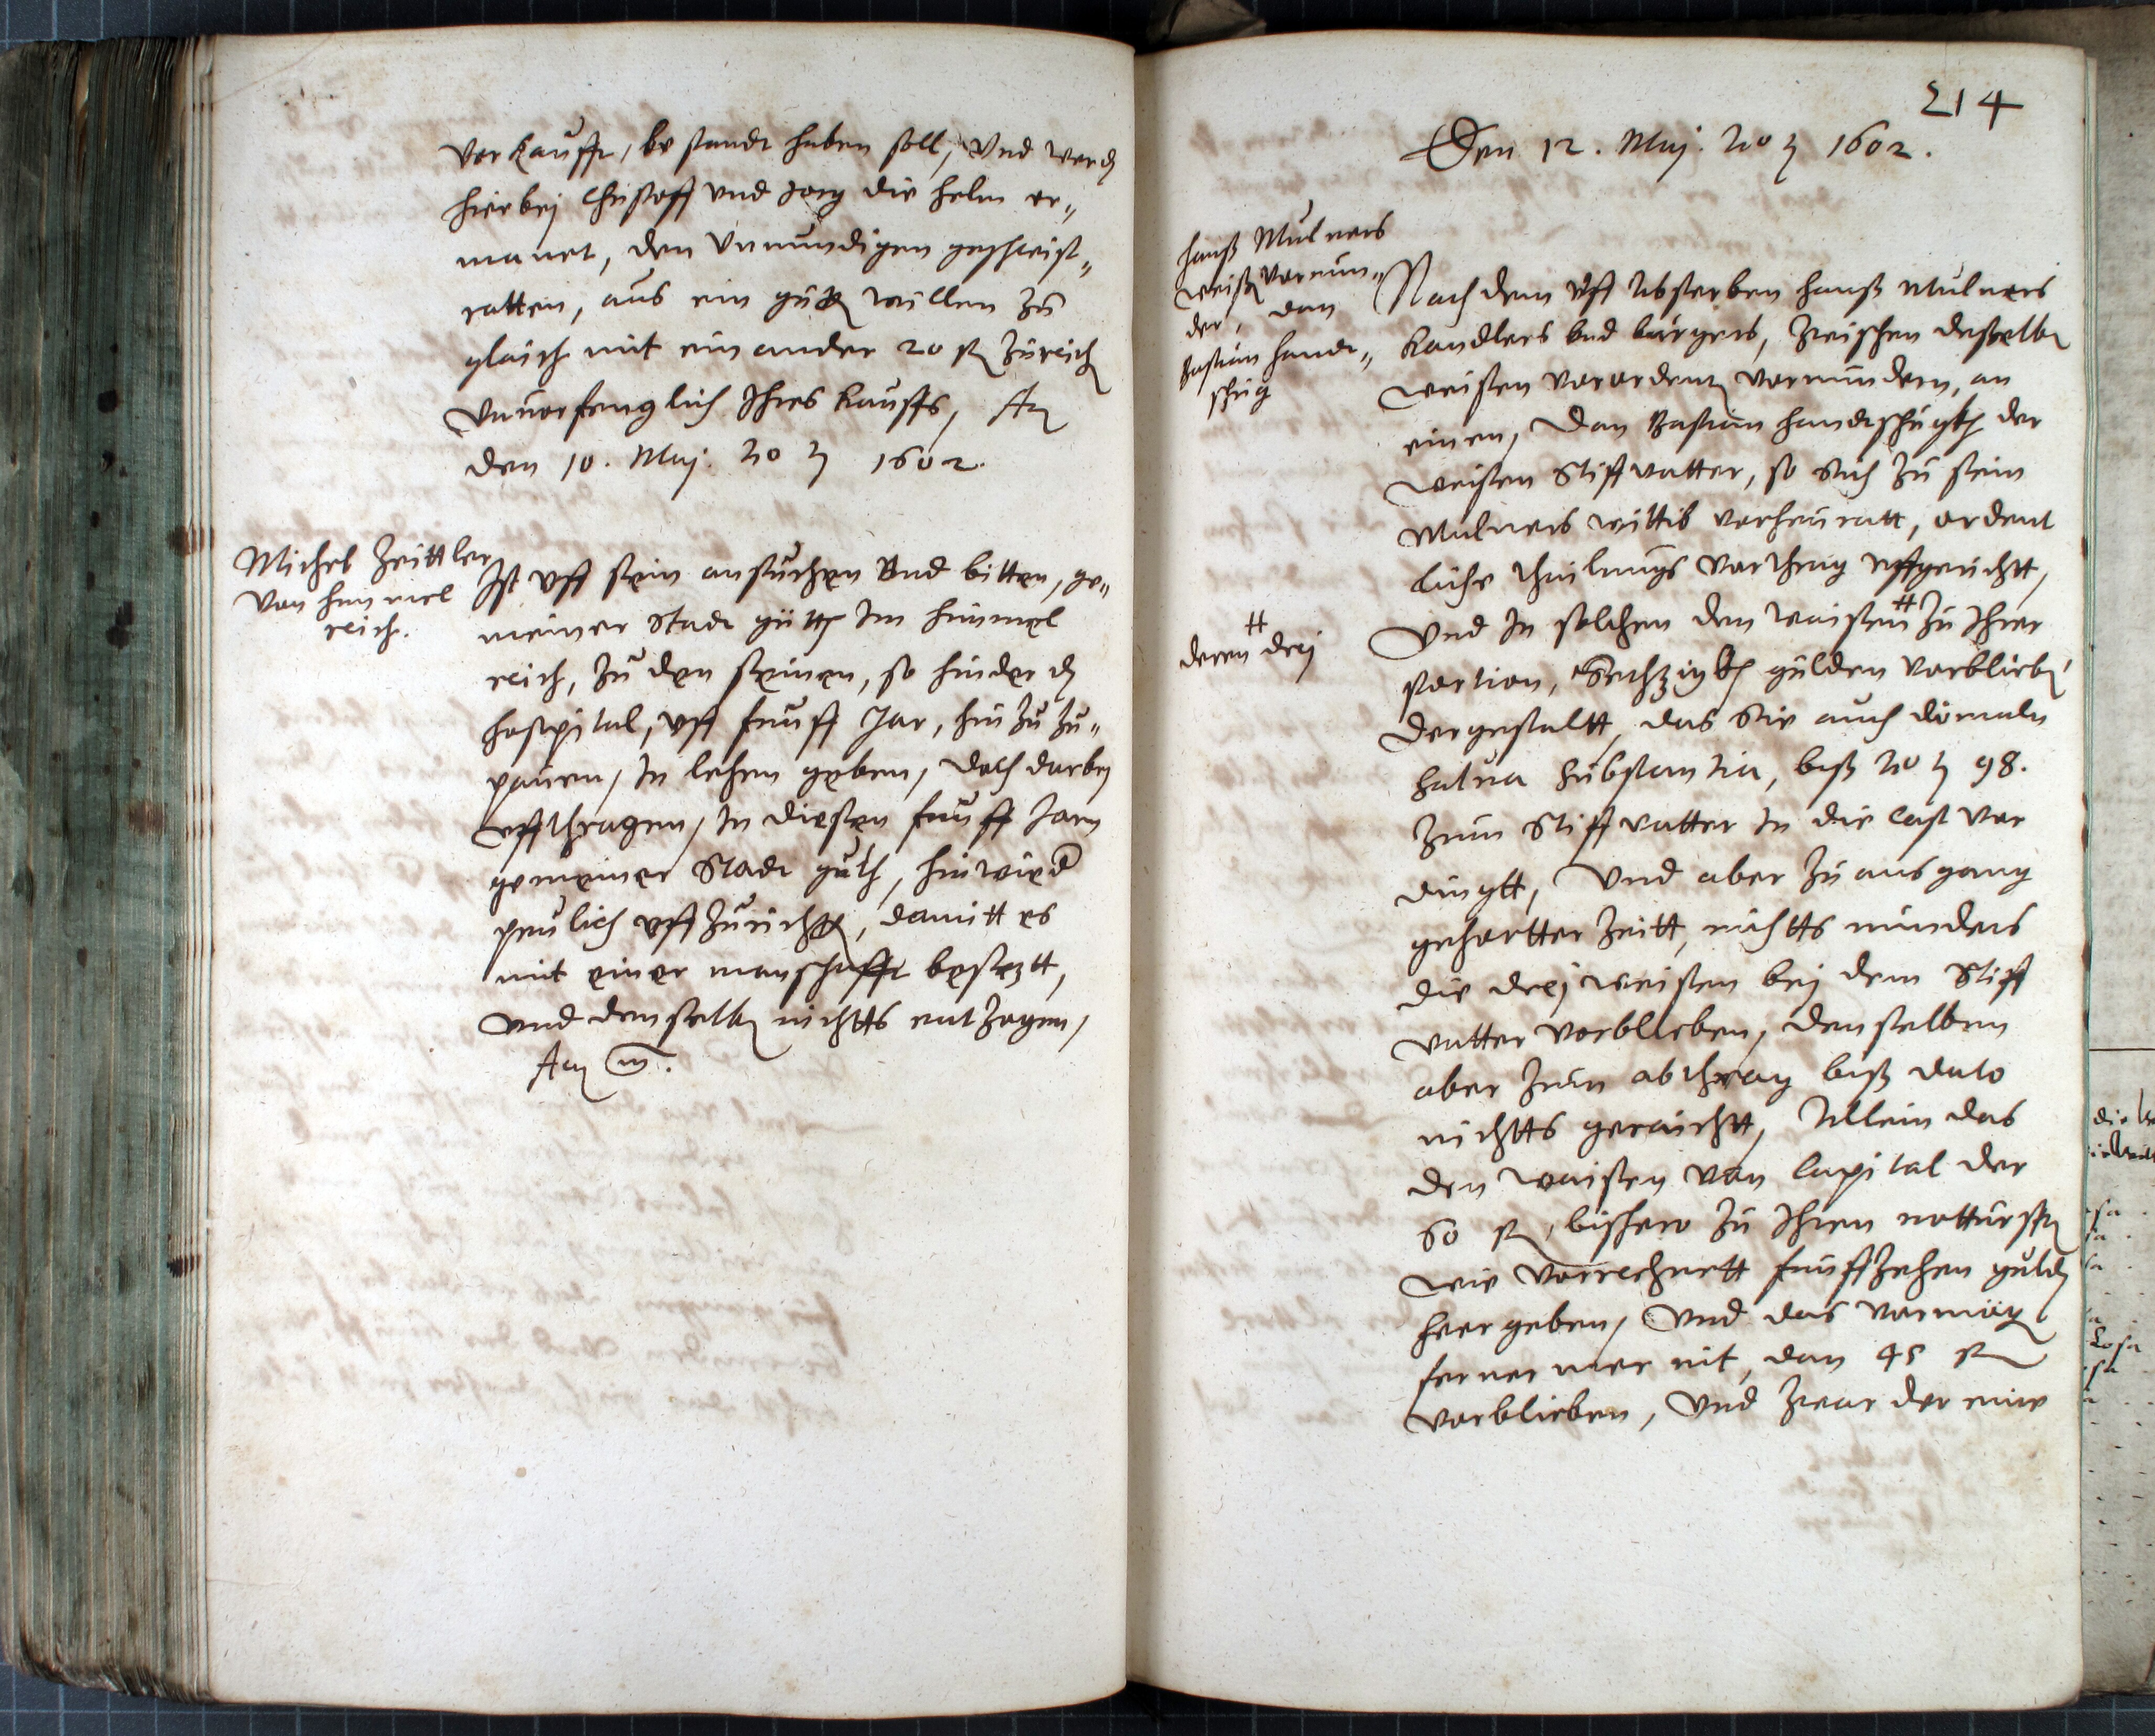 verkaufft, bestandt haben soll, Und werden
hierbej Christoff vnd Jorg die helm er„
manet, den Vnmundigen geschwist„
ratten, aus ein guten willen zu
gleich mit einander 20 fl zureichen
Vnuorfenglich Ihres kauffs, Actum
den 10. Maij. Ao 1602.
Michel Zeittler
von himmel
reich.
Ist vff sein ansuchen Vnd bitten, ge„
meiner Stadt gutt Im himmel
reich, zu den seinen, so hinder dem
hospital, vff funff Jar, hin zu zu„
pauen, In lehen geben, doch darbej
vffthragen, In diesen funff Jarn
gemeiner Stadt guth, hinwied
peulich vffzurichten, damitt es
mit einer manschafft besetztt,
Vnd demselben nichtts entzogen,
Actum
214
Den 12. Maij. Ao 1602.
hanß Mulners
weißen vormun„
der, dan
Bastian handt„
schug
Nach dem vff Absterben hanß Mulners
kandlers vnd burgers, zwischen desselben
weissen verordenten vormundern, an
einen, dan Bastian handtschugkh der
weissen Stiffvatter, so sich zu sein
Mulners wittib verheuratt, ordent
liche theilungs verthrag vffgerichtt,
Vnd In solchen den waissen # zu Ihrer
# deren drej
portion, Sechzigkh gulden verblieben,
dergestaltt, das Sie auch domaln
salua substantia, biß Ao 98.
zum Stiffvatter In die Cost ver
dingtt, Vnd aber zu ausgang
gehortter Zeitt, nichtts minders
die drej weissen bej dem Stiff
vatter verblieben, demselben
aber zum abthrag biß dato
nichtts geraichtt, Allein das
den waissen von Capital der
60 fl, bishero zu Ihren notturfften
wie verrechnett funffzehen gulden
heer geben, Vnd das vermög
ferner mer nit, dan 45 fl
verblieben, Vnd zwar der eine